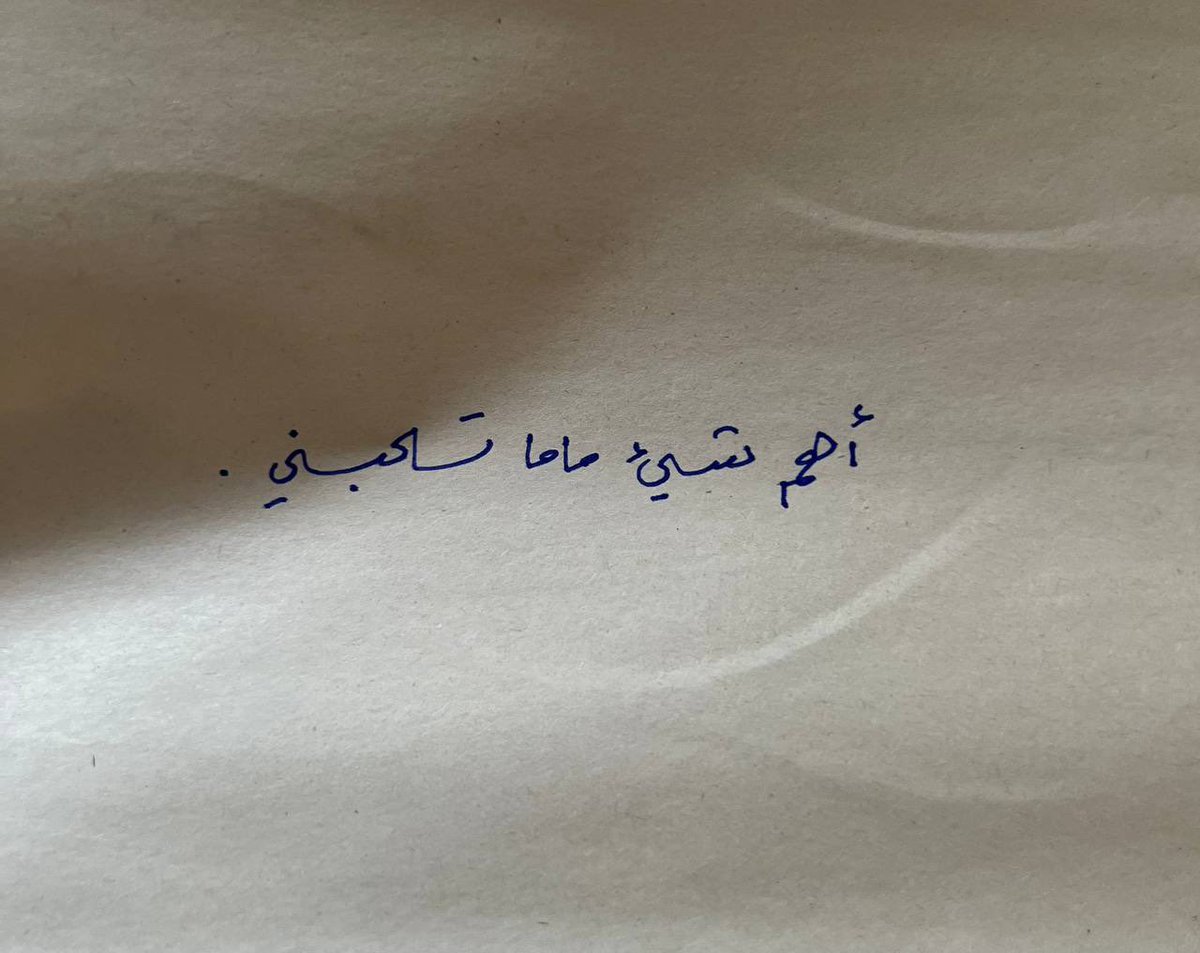 أهم شيء ماما تحبني .